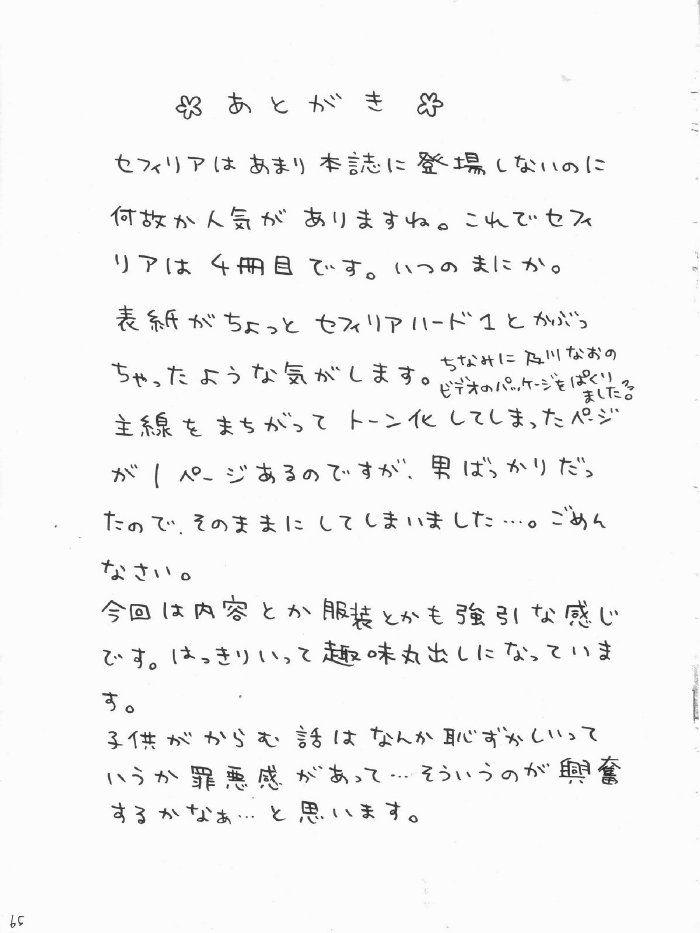 あとがき
セフィリアはあまり本誌に登場しないのに
何故か人気がありますね。これでセフィ
リアは4冊目です。いつのまにか。
表紙がちょっとセフィリアハード1とかぶっ
ちゃったような気がします。
ちなみに及川なおの
ビデオのパッケージをぱくり
ました。
主線をまちがってトーン化してしまったページ
が1ページあるのですが、男ばっかりだっ
たので、そのままにしてしまいました…。ごめん
なさい。
今回は内容とか服装とかも強引な感じ
です。はっきりいって趣味丸出しになっていま
す。
子供がからむ話はなんか恥ずかしいって
いうか罪悪感があって…そういうのが興奮
するかなぁ…と思います。
65